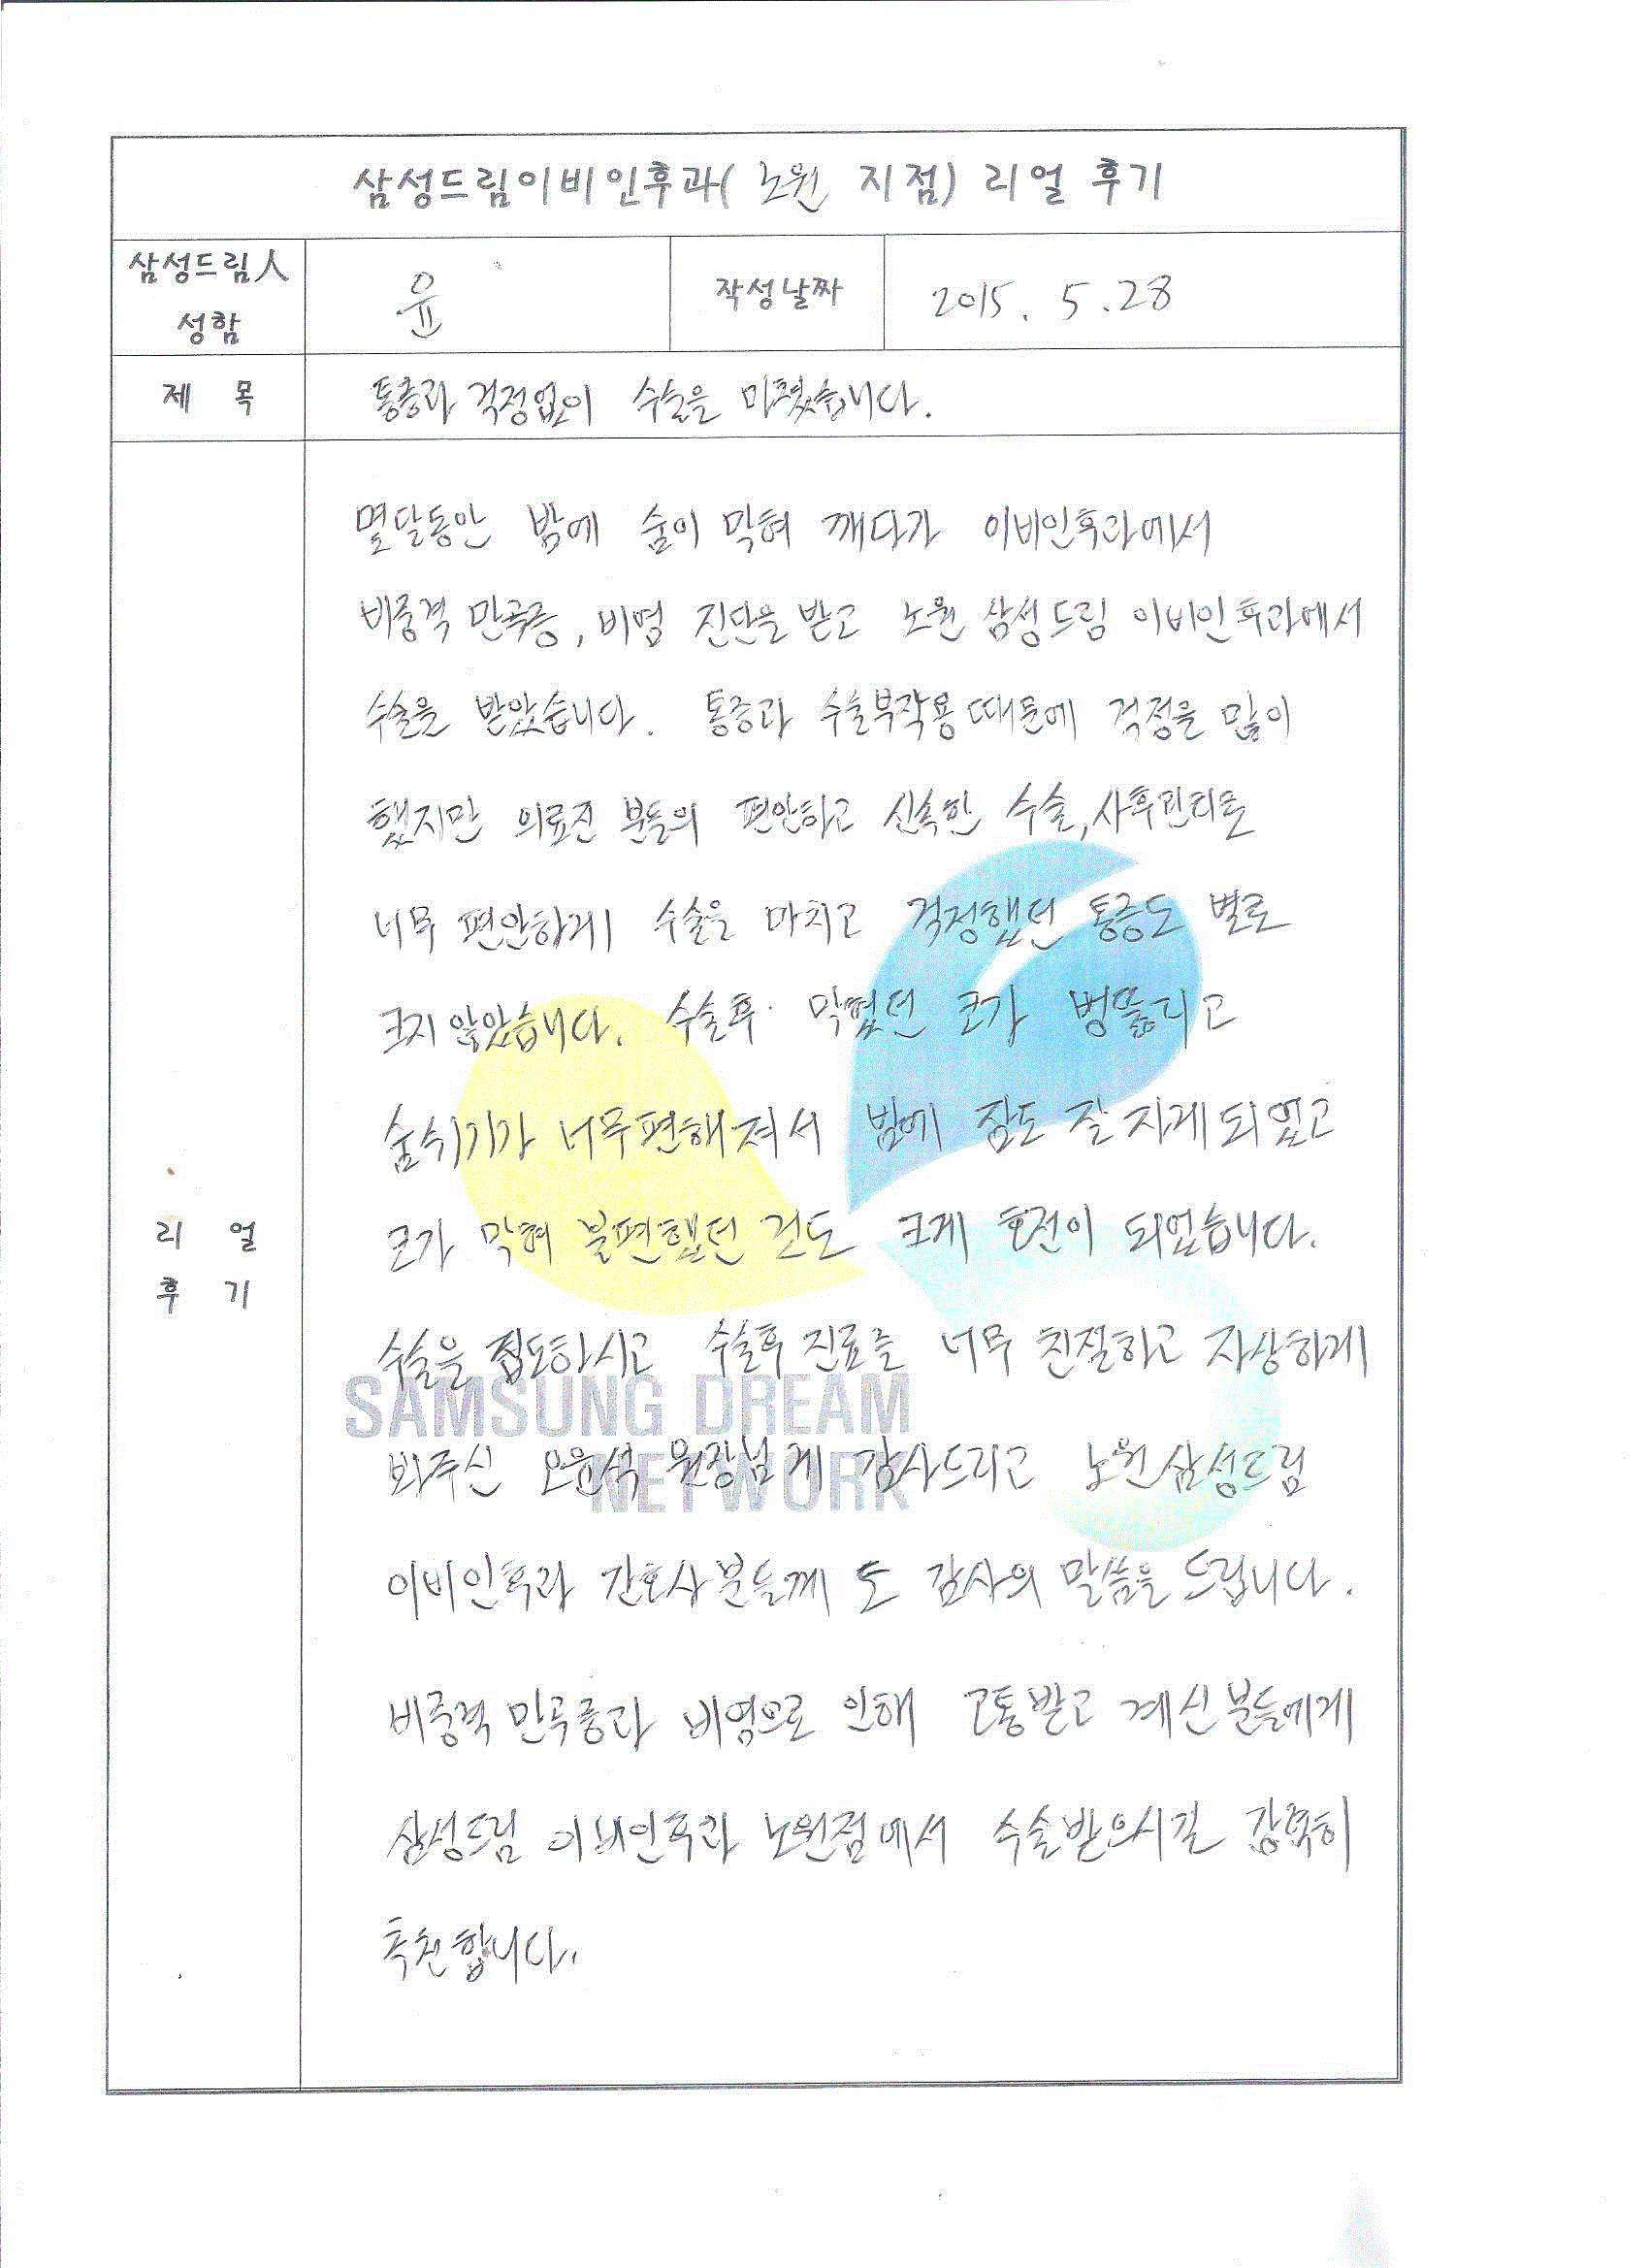 삼성드림이비인후과( 노원 지점) 리얼 후기
삼성드림人
성함
윤
작성날짜
2015. 5. 28
제 목
통증과 걱정없이 수술을 마쳤습니다.
몇달동안 밤에 숨이 막혀 깨다가 이비인후과에서
비중격 만곡증, 비염 진단을 받고 노원 삼성드림 이비인후과에서
수술을 받았습니다. 통증과 수술부작용때문에 걱정을 많이
했지만 의료진 분들의 편안하고 신속한 수술, 사후관리로
너무 편안하게 수술을 마치고 걱정했던 통증도 별로
크지 않았습니다. 수술후 막혔던 코가 뻥뚫리고
숨쉬기가 너무편해져서 밤에 잠도 잘 자게 되었고
코가 막혀 불편했던 건도 크게 호전이 되었습니다.
수술을 집도하시고 수술후 진료를 너무 친절하고 자상하게
봐주신 오윤석 원장님게 감사드리고 노원삼성드림
이비인후과 간호사분들께 도 감사의 말씀을 드립니다.
비중격 만곡증과 비염으로 인해 고통받고 계신분들에게
삼성드림 이비인후과 노원점에서 수술받으시길 강력히
추천합니다.
리 얼
후 기
SAMSUNG DREAM
NETWORK